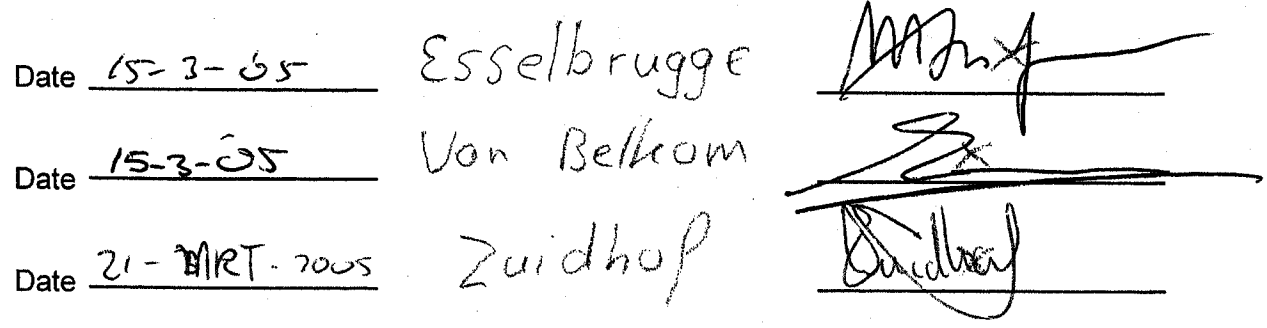 Date 15-3-05 Esselbrugge
Date 15-3-05 Van Belkom
Date 21-MRT-2005 Zuidhof Zuidhof